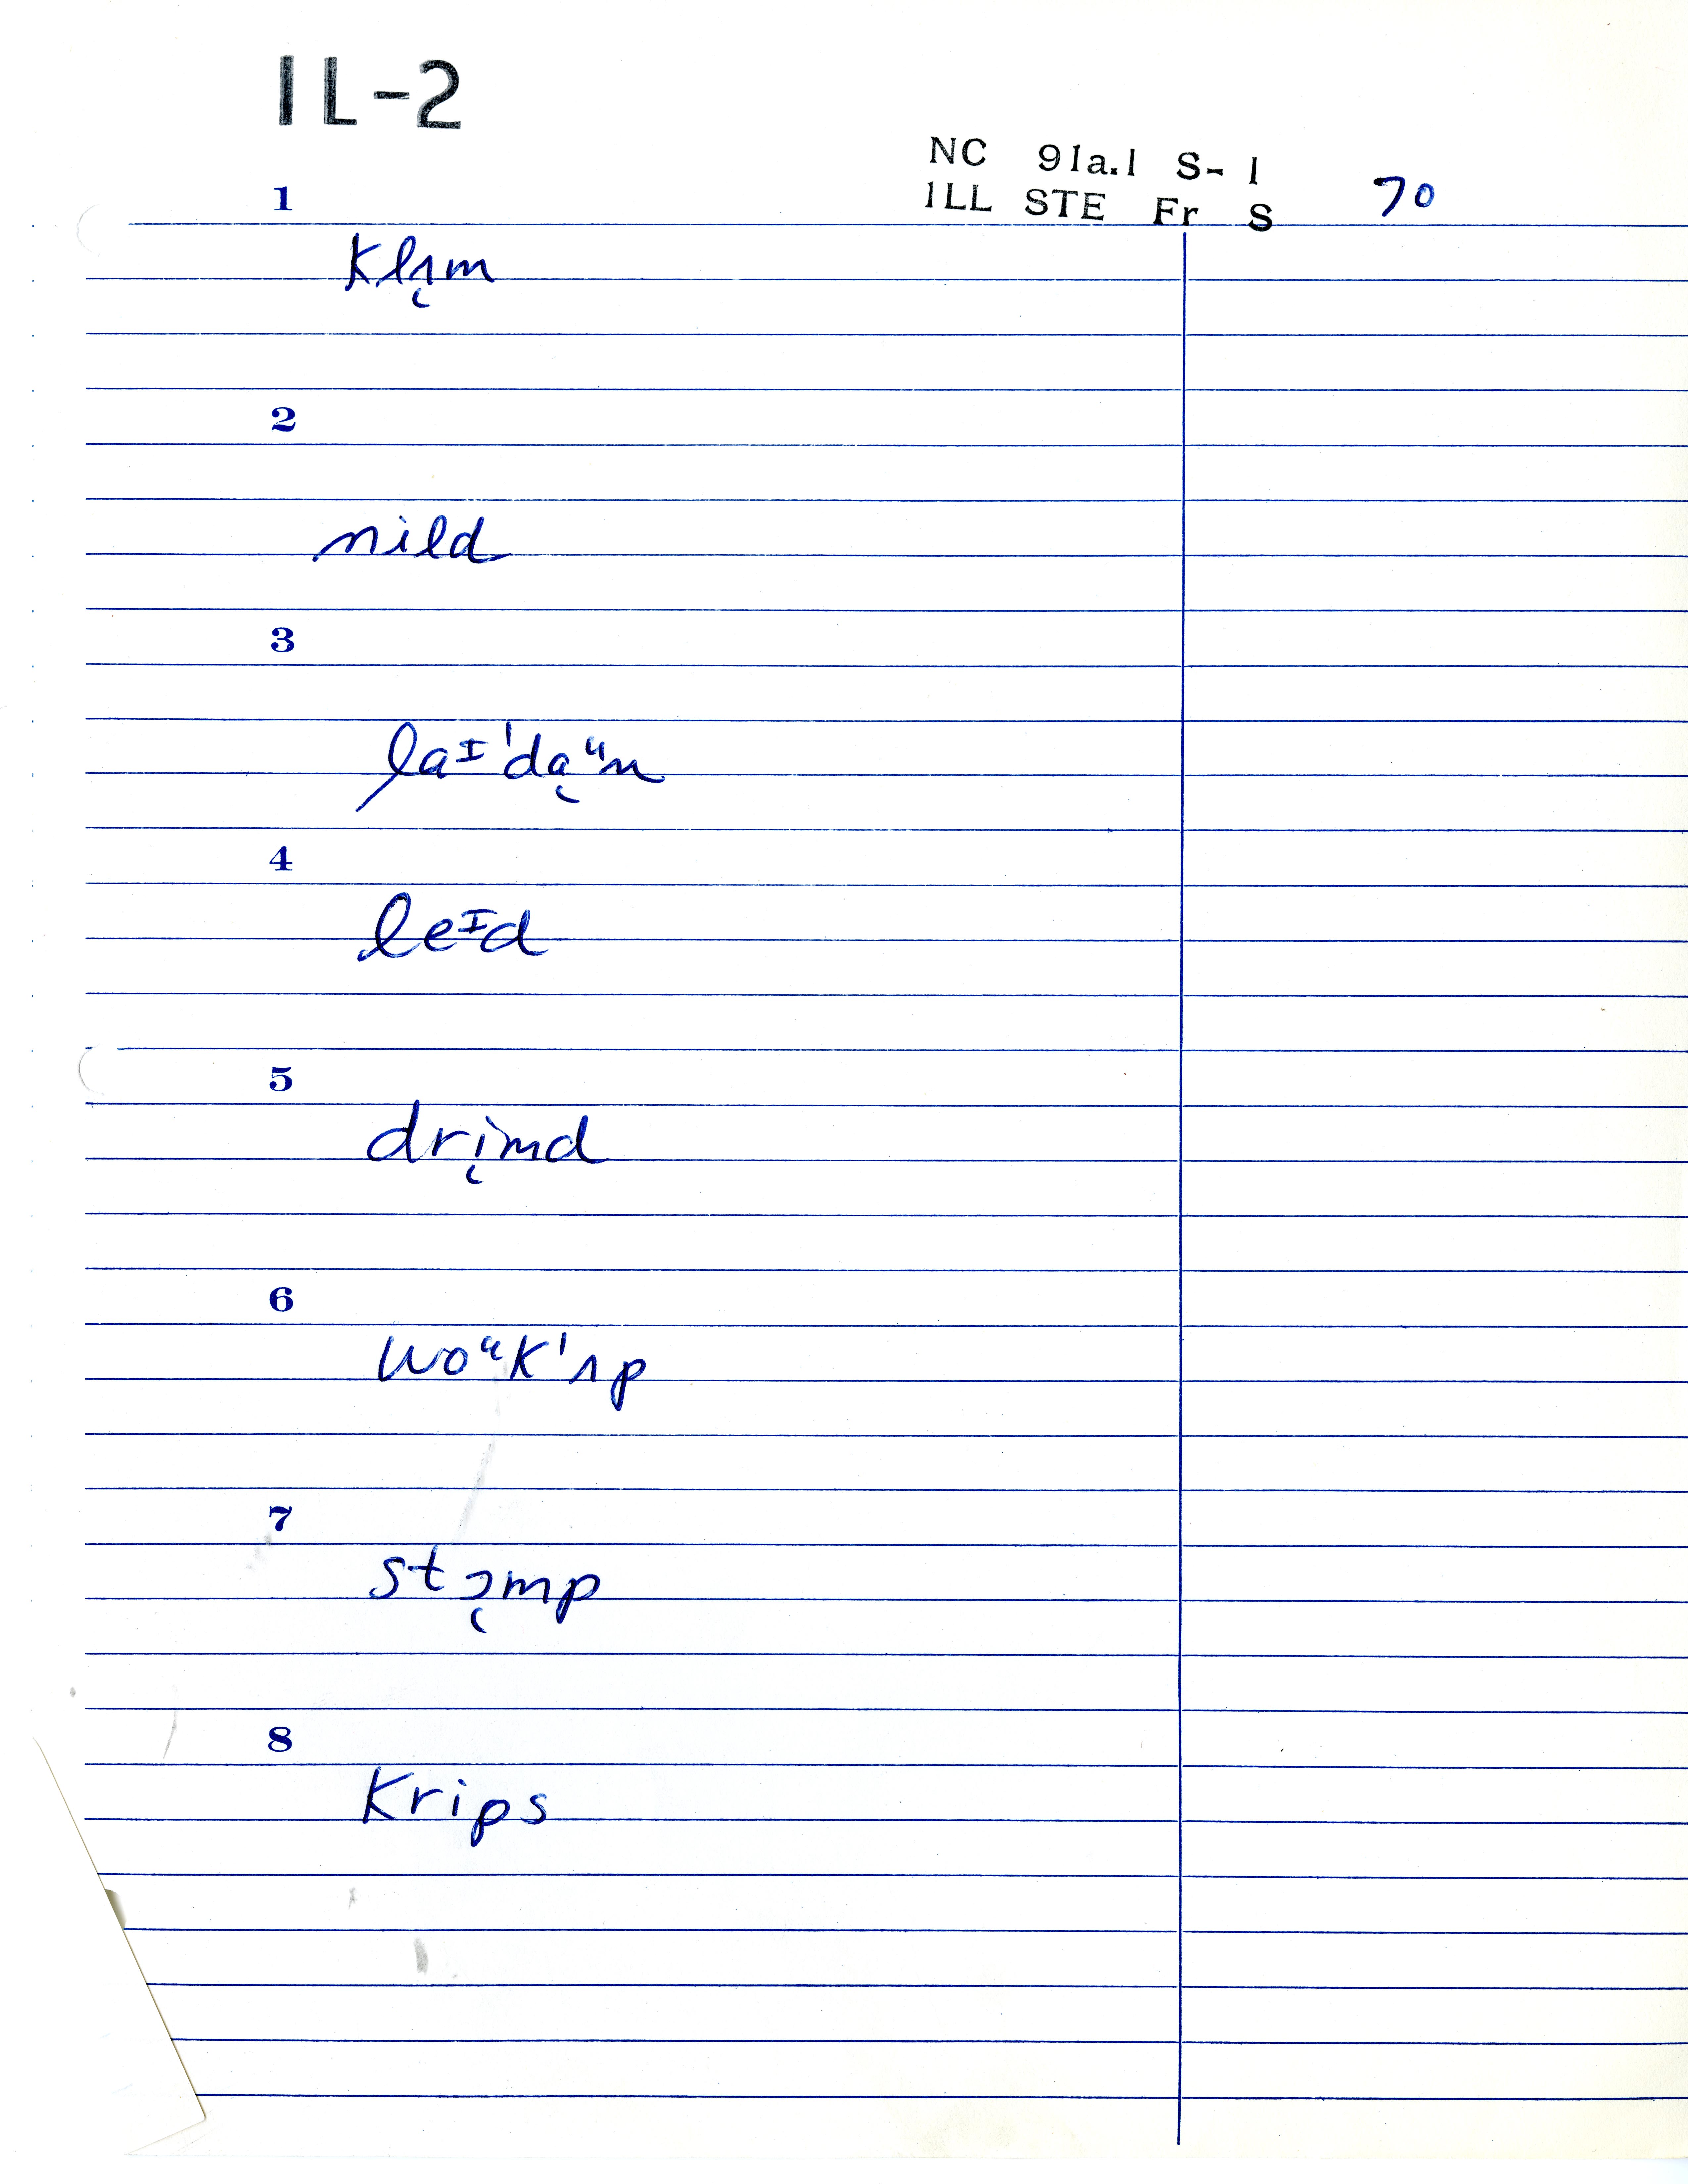 IL-2
NC 91a.1 S- 1
ILL STE Fr S 70
1
klʌ̜m
2
nild
3
laᶦˈda̜ᵘn
4
leᶦd
5
dri̜md
6
woᵘkˈʌp
7
stɔ̜mp
8
krips